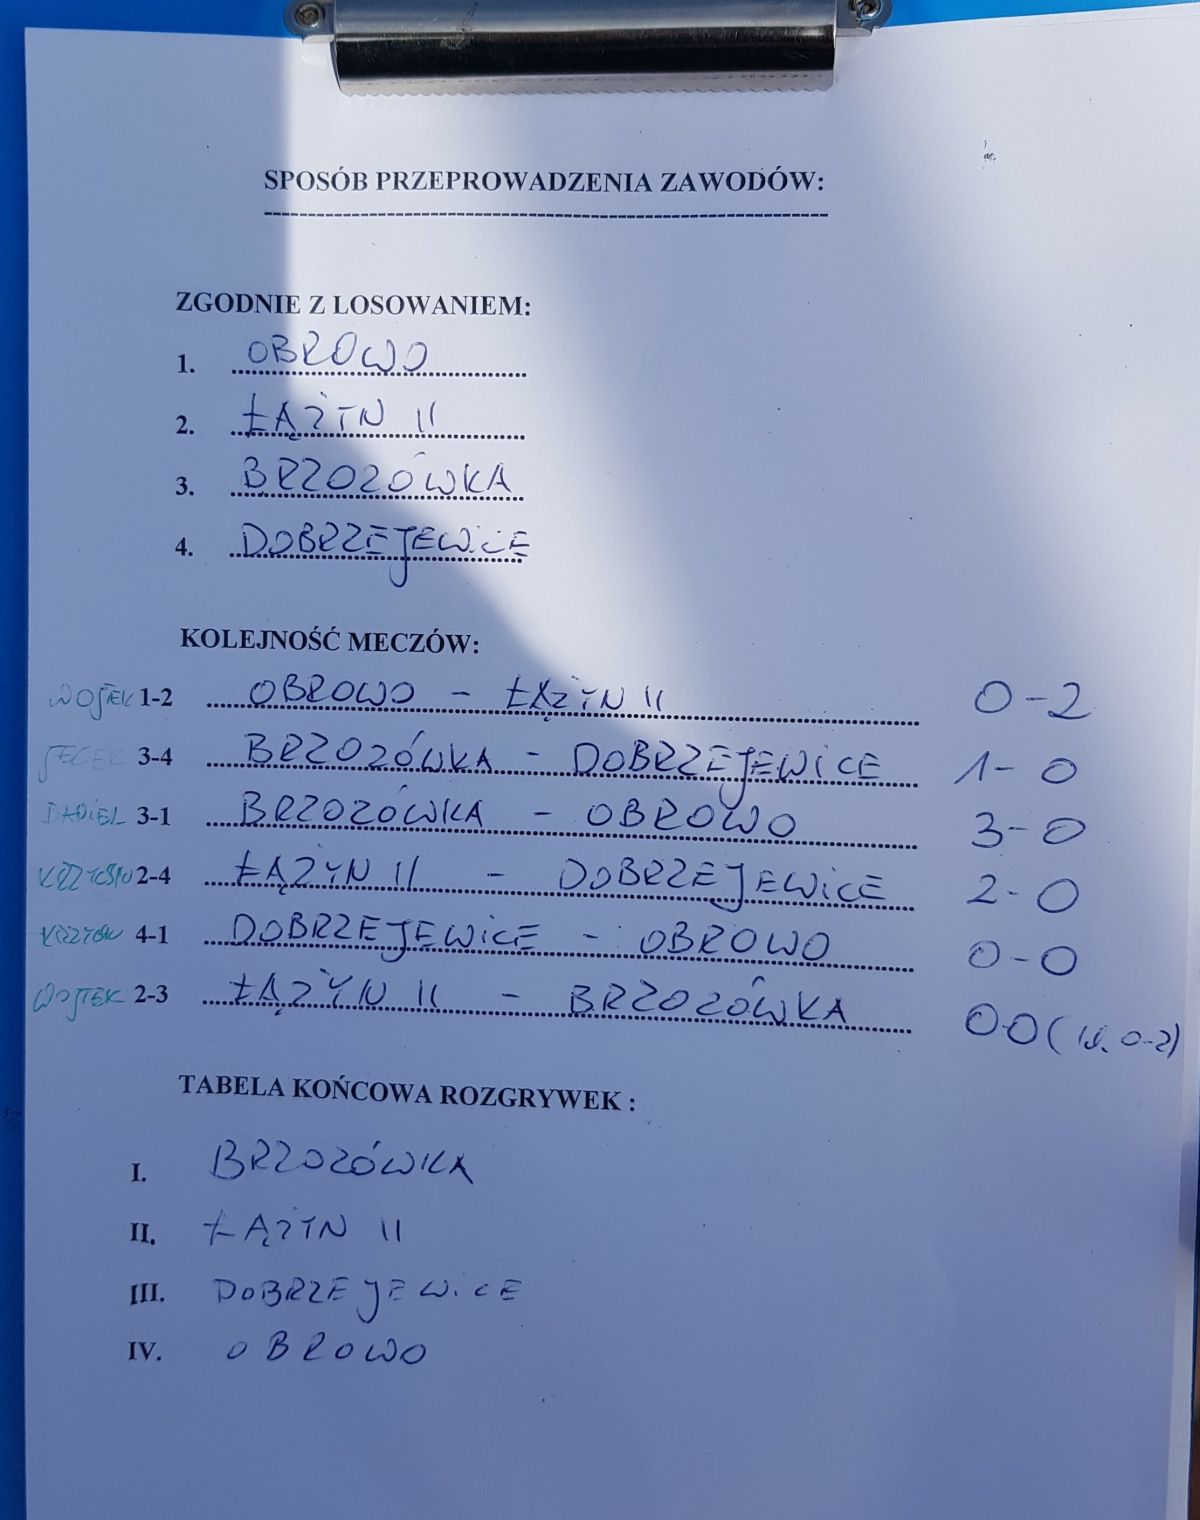 SPOSÓB PRZEPROWADZENIA ZAWODÓW:
ZGODNIE Z LOSOWANIEM:
1. OBROWO
2. ŁĄŻYN II
3. BRZOZÓWKA
4. DOBRZEJEWICE
KOLEJNOŚĆ MECZÓW:
WOJTEK 1-2 OBROWO - ŁĄŻYN II 0-2
3-4 BRZOZÓWKA - DOBRZEJEWICE 1-0
DANIEL 3-1 BRZOZÓWKA - OBROWO 3-0
2-4 ŁĄŻYN II - DOBRZEJEWICE 2-0
4-1 DOBRZEJEWICE - OBROWO 0-0
WOJTEK 2-3 ŁĄŻYN II - BRZOZÓWKA 0-0 (k. 0-2)
TABELA KOŃCOWA ROZGRYWEK :
I. BRZOZÓWKA
II. ŁĄŻYN II
III. DOBRZEJEWICE
IV. OBROWO